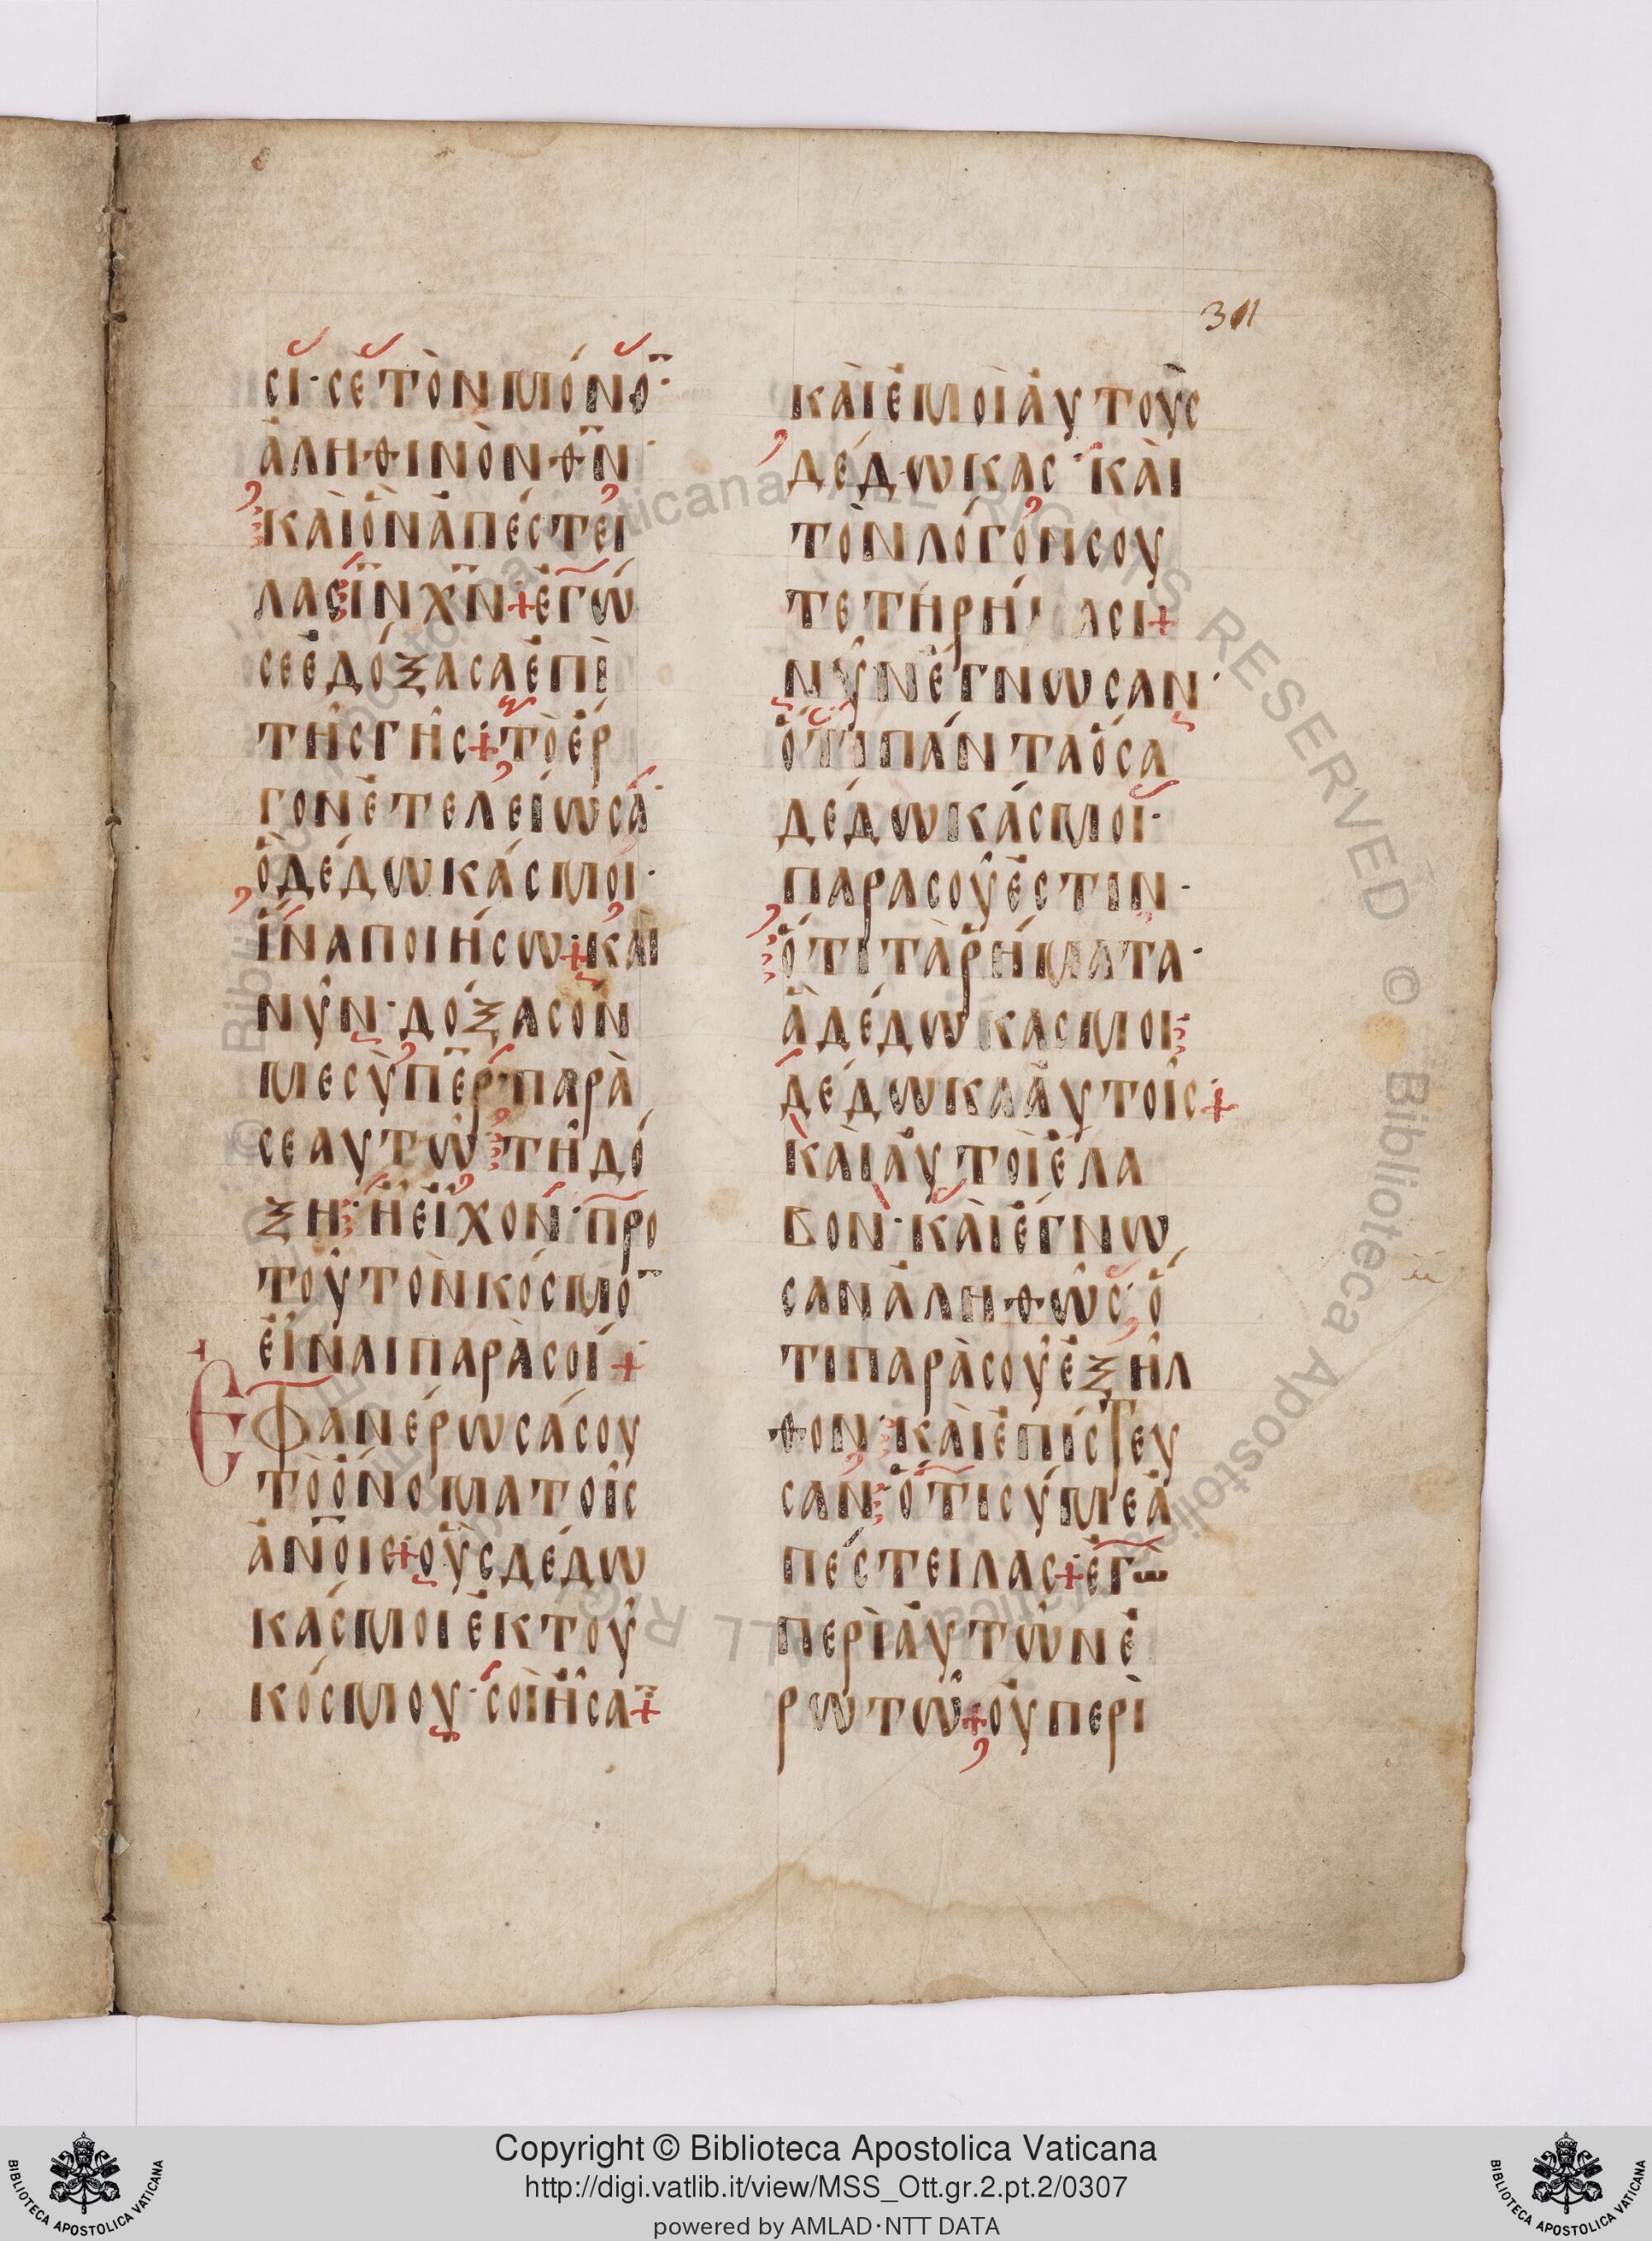 311
σι· σὲ τὸν μόνο̅·
ἀληθινὸν θ̅ν̅·
καὶ ὃν ἀπέστει
λας ι̅ν̅ χ̅ν̅ + ἐγώ
σε ἐδόξασα ἐπὶ
τῆς γῆς + τὸ ἔρ
γον ἐτελείωσα·
ὃ δέδωκάς μοι·
ἵνα ποιήσω + καὶ
νῦν· δόξασόν
με σύ π̅ε̅ρ· παρὰ
σεαυτῶ τῆ δό
ξη· ἧ εἶχον· προ
τοῦ τὸν κόσμο̅
εἶναι παρὰ σοί +
Εφανέρωσά σου
τὸ ὄνομα τοῖς
ἀν̅ο̅ις + οὓς δέδω
κάς μοι ἐκ τοῦ
κόσμου· σοὶ ἦσα̅ +
καὶ ἐμοὶ αὐτοὺς
δέδωκας· καὶ
τὸν λόγον σου
τετηρήκασι +
νῦν ἔγνωσαν·
ὅτι πάντα ὅσα
δέδωκάς μοι·
παρα σοῦ ἐστιν·
ὅτι τὰ ῥήματα·
ἃ δέδωκας μοι
δέδωκα αὐτοῖς +
καὶ αὐτοὶ ἔλα
βον· καὶ ἔγνω
σαν ἀληθῶς· ὅ
τι παρὰ σοῦ ἐξῆλ
θον· καὶ ἐπίστευ
σαν· ὅτι σύ με ἀ
πέστειλας + ἐγὼ
περὶ αὐτῶν ἐ
ρωτῶ + οὐ περὶ
Copyright © Biblioteca Apostolica Vaticana
http://digi.vatlib.it/view/MSS_Ott.gr.2.pt.2/0307
powered by AMLAD·NTT DATA
BIBLIOTECA APOSTOLICA VATICANA
BIBLIOTECA APOSTOLICA VATICANA